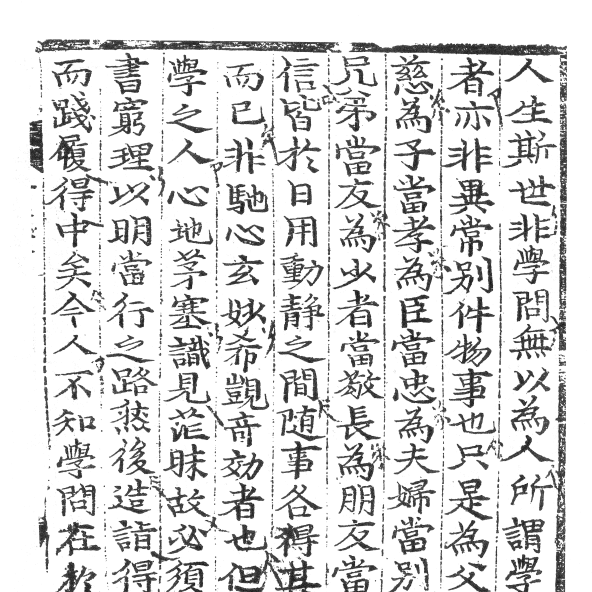 人生斯世非學問無以為人所謂學
者亦非異常別件物事也只是為父
慈為子當孝為臣當忠為夫婦當別
兄弟當友為少者當敬長為朋友當
信皆於日用動静之間随事各得其
而已非馳心玄妙希覬奇効者也但
學之人心地茅塞識見茫昧故必須
書窮理以明當行之路然後造詣得
而踐履得中矣今人不知學問在於